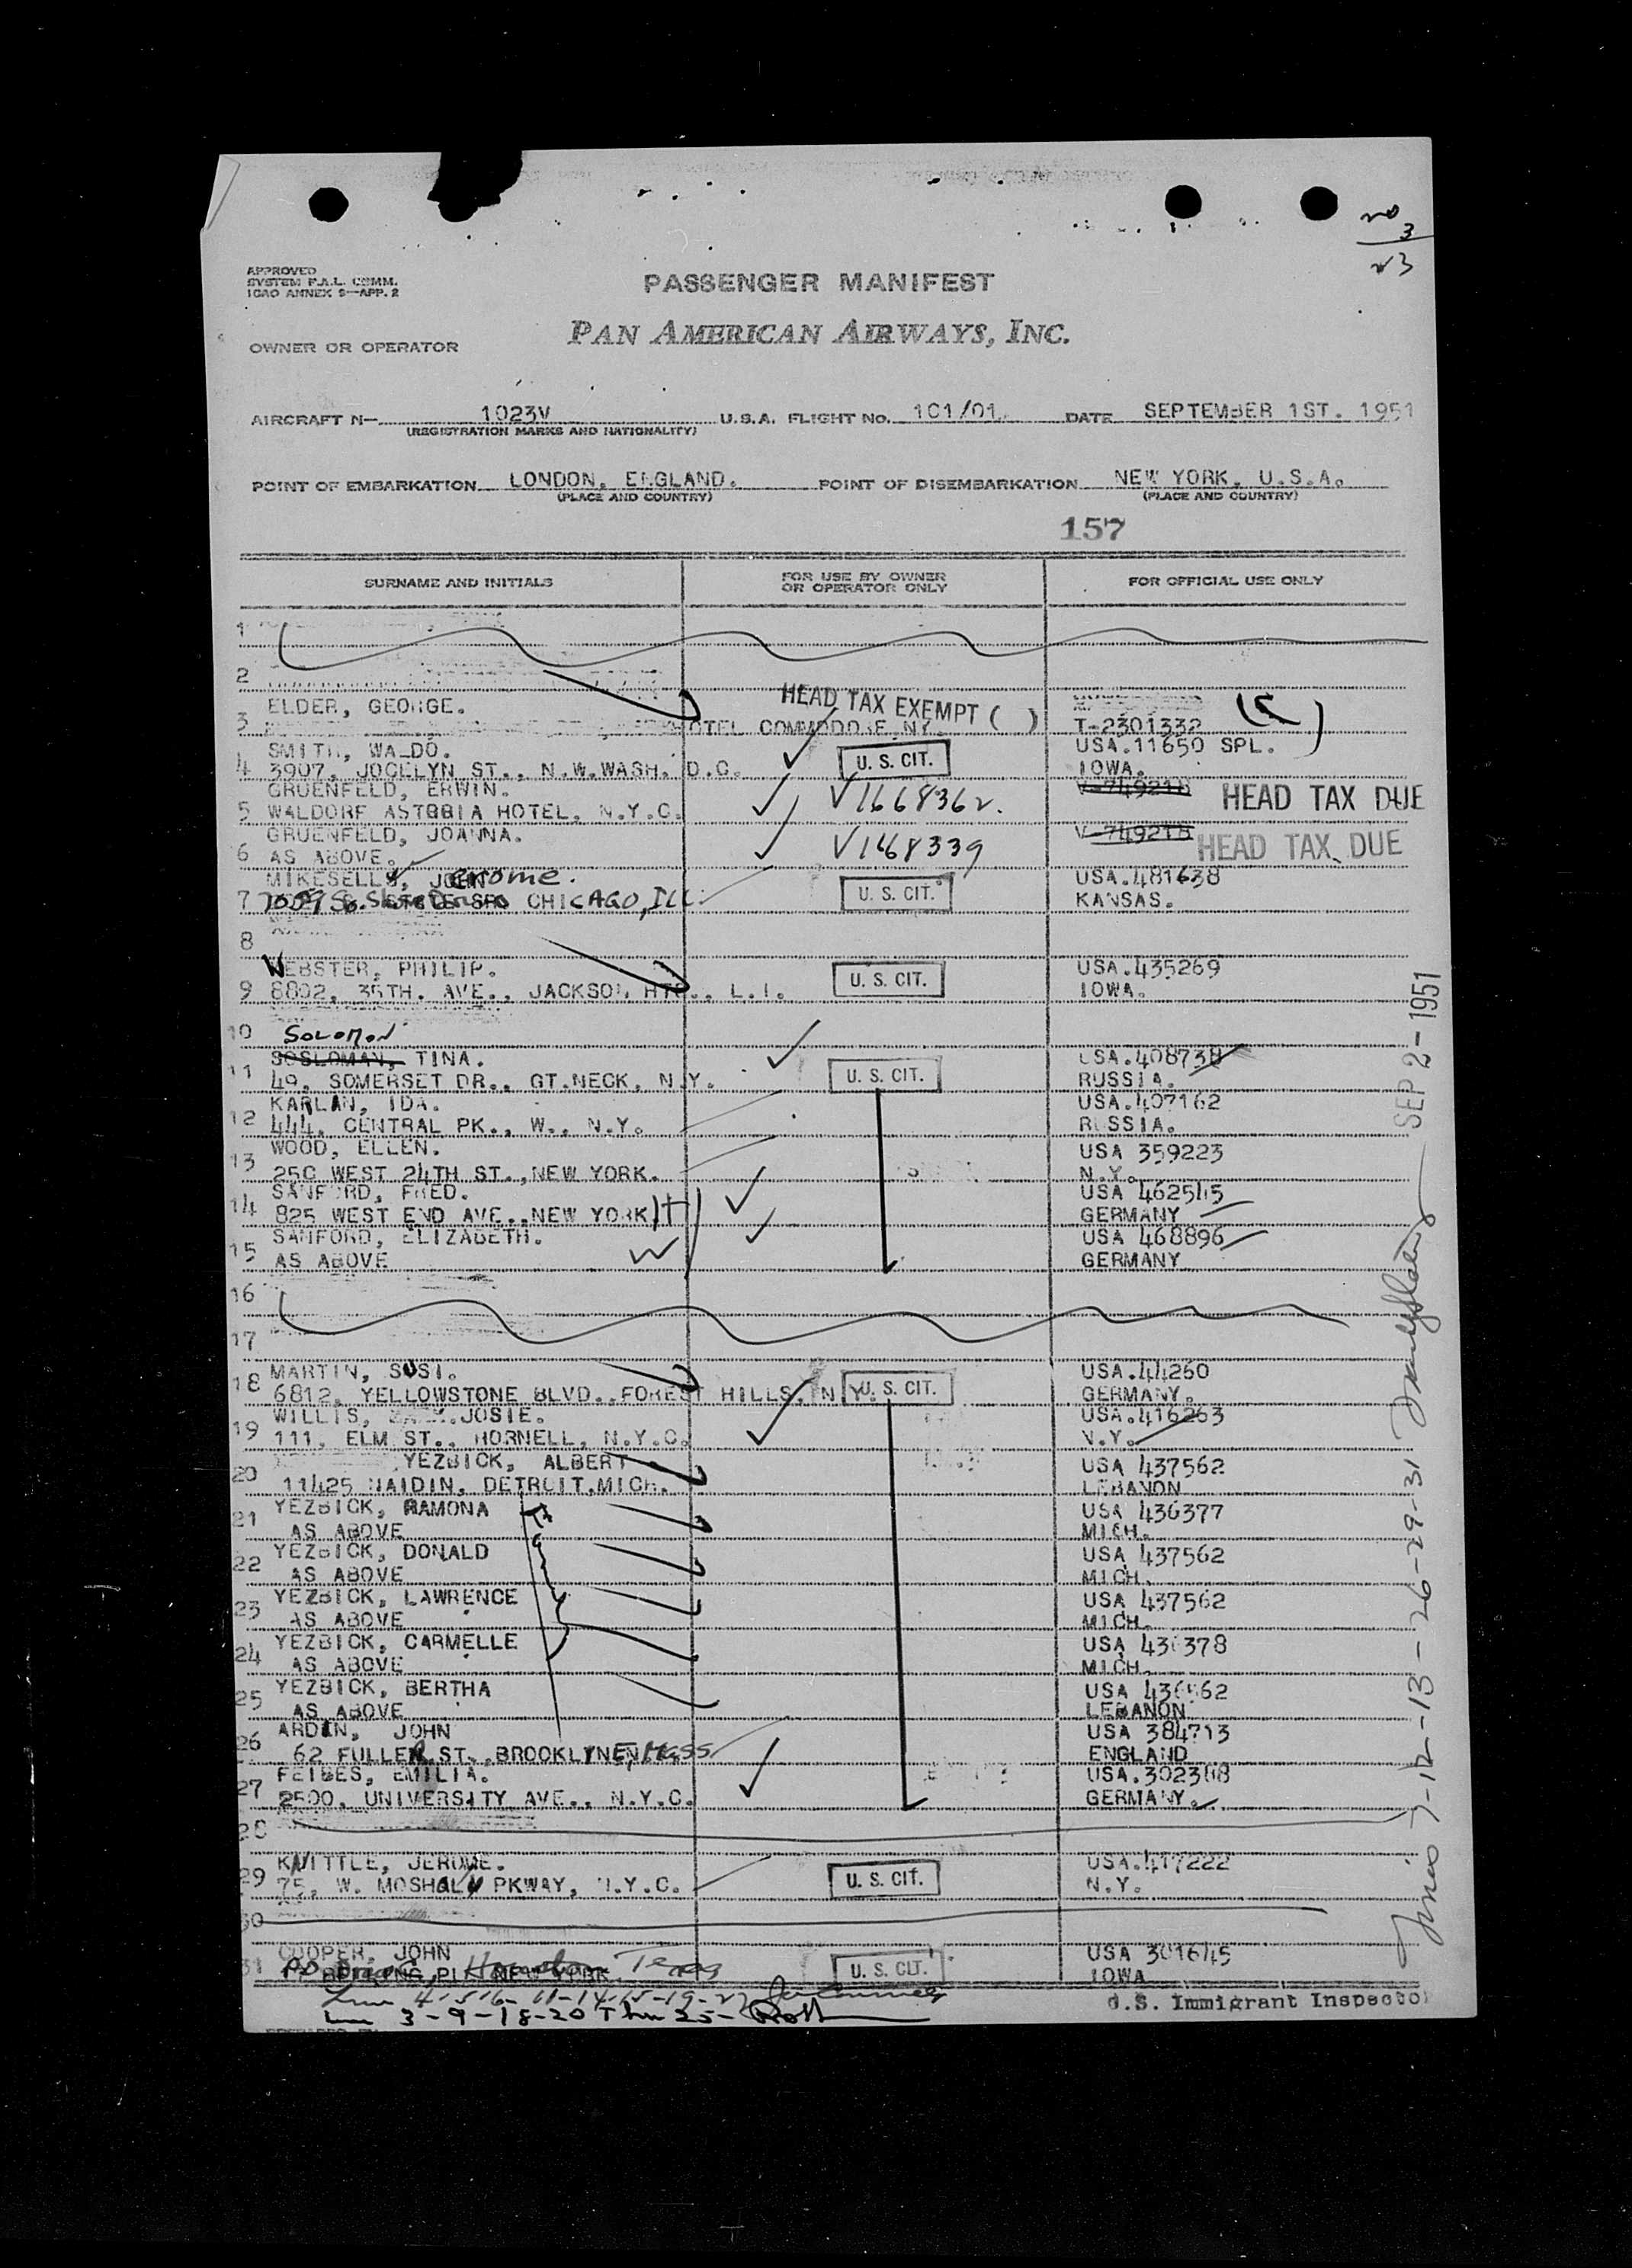 APPROVED
SYSTEM F.A.L. COMM.
ICAO ANNEX 9—APP. 2
PASSENGER MANIFEST
PAN AMERICAN AIRWAYS, INC.
OWNER OR OPERATOR
AIRCRAFT N— 1023V U.S.A. FLIGHT NO. 101/01. DATE SEPTEMBER 1ST. 1951
(REGISTRATION MARKS AND NATIONALITY)
POINT OF EMBARKATION LONDON, ENGLAND. POINT OF DISEMBARKATION NEW YORK, U.S.A.
(PLACE AND COUNTRY) (PLACE AND COUNTRY)
157
SURNAME AND INITIALS FOR USE BY OWNER OR OPERATOR ONLY FOR OFFICIAL USE ONLY
1
2
ELDER, GEORGE. HEAD TAX EXEMPT ( )
3 HOTEL COMMODORE NY. T-2301332
SMITH, WALDO. USA.11650 SPL.
4 3907, JOCELYN ST., N.W.WASH. D.C. U. S. CIT. IOWA.
GRUENFELD, ERWIN. V-749218 HEAD TAX DUE
5 WALDORF ASTORIA HOTEL, N.Y.C. V1668362
GRUENFELD, JOANNA. V-749218 HEAD TAX DUE
6 AS ABOVE. V168339
MIKESELL, JEROME. USA.481638
7 CHICAGO, ILL. U. S. CIT. KANSAS.
8
WEBSTER, PHILIP. USA.435269
9 8802, 35TH. AVE., JACKSON HTS., L.I. U. S. CIT. IOWA.
10 SOLOMON
SOSLOMAN, TINA. USA.408738
11 49, SOMERSET DR., GT.NECK, N.Y. U. S. CIT. RUSSIA.
KARLAN, IDA. USA.407162
12 444, CENTRAL PK., W., N.Y. RUSSIA.
WOOD, ELLEN. USA 359223
13 250 WEST 24TH ST.,NEW YORK. N.Y.
SANFORD, FRED. USA 462545
14 825 WEST END AVE.,NEW YORK GERMANY
SANFORD, ELIZABETH. USA 468896
15 AS ABOVE GERMANY
16
17
MARTIN, SUSI. USA.44260
18 6812, YELLOWSTONE BLVD.,FOREST HILLS, N.Y. U. S. CIT. GERMANY.
WILLIS, JOSIE. USA.416263
19 111, ELM ST., HORNELL, N.Y.C. N.Y.
YEZBICK, ALBERT USA 437562
20 11425 NAIDIN, DETROIT,MICH. LEBANON
YEZBICK, RAMONA USA 436377
21 AS ABOVE MICH.
YEZBICK, DONALD USA 437562
22 AS ABOVE MICH.
YEZBICK, LAWRENCE USA 437562
23 AS ABOVE MICH.
YEZBICK, CARMELLE USA 436378
24 AS ABOVE MICH.
YEZBICK, BERTHA USA
25 AS ABOVE LEBANON
ARDEN, JOHN USA 384713
26 62 FULLER ST., BROOKLINE, Mass ENGLAND
FEIBES, EMILIA. USA.302368
27 2500, UNIVERSITY AVE., N.Y.C. GERMANY.
28
KNITTLE, JEROME. USA.417222
29 75, W. MOSHOLU PKWAY, N.Y.C. U. S. CIT. N.Y.
30
COOPER, JOHN USA 301645
31 Houston Texas U. S. CIT. IOWA
4-5-6-11-14-15-19-27
3-9-18-20 Thru 25- Roth
U.S. Immigrant Inspector
SEP 2-1951
7-12-13-26-29-31